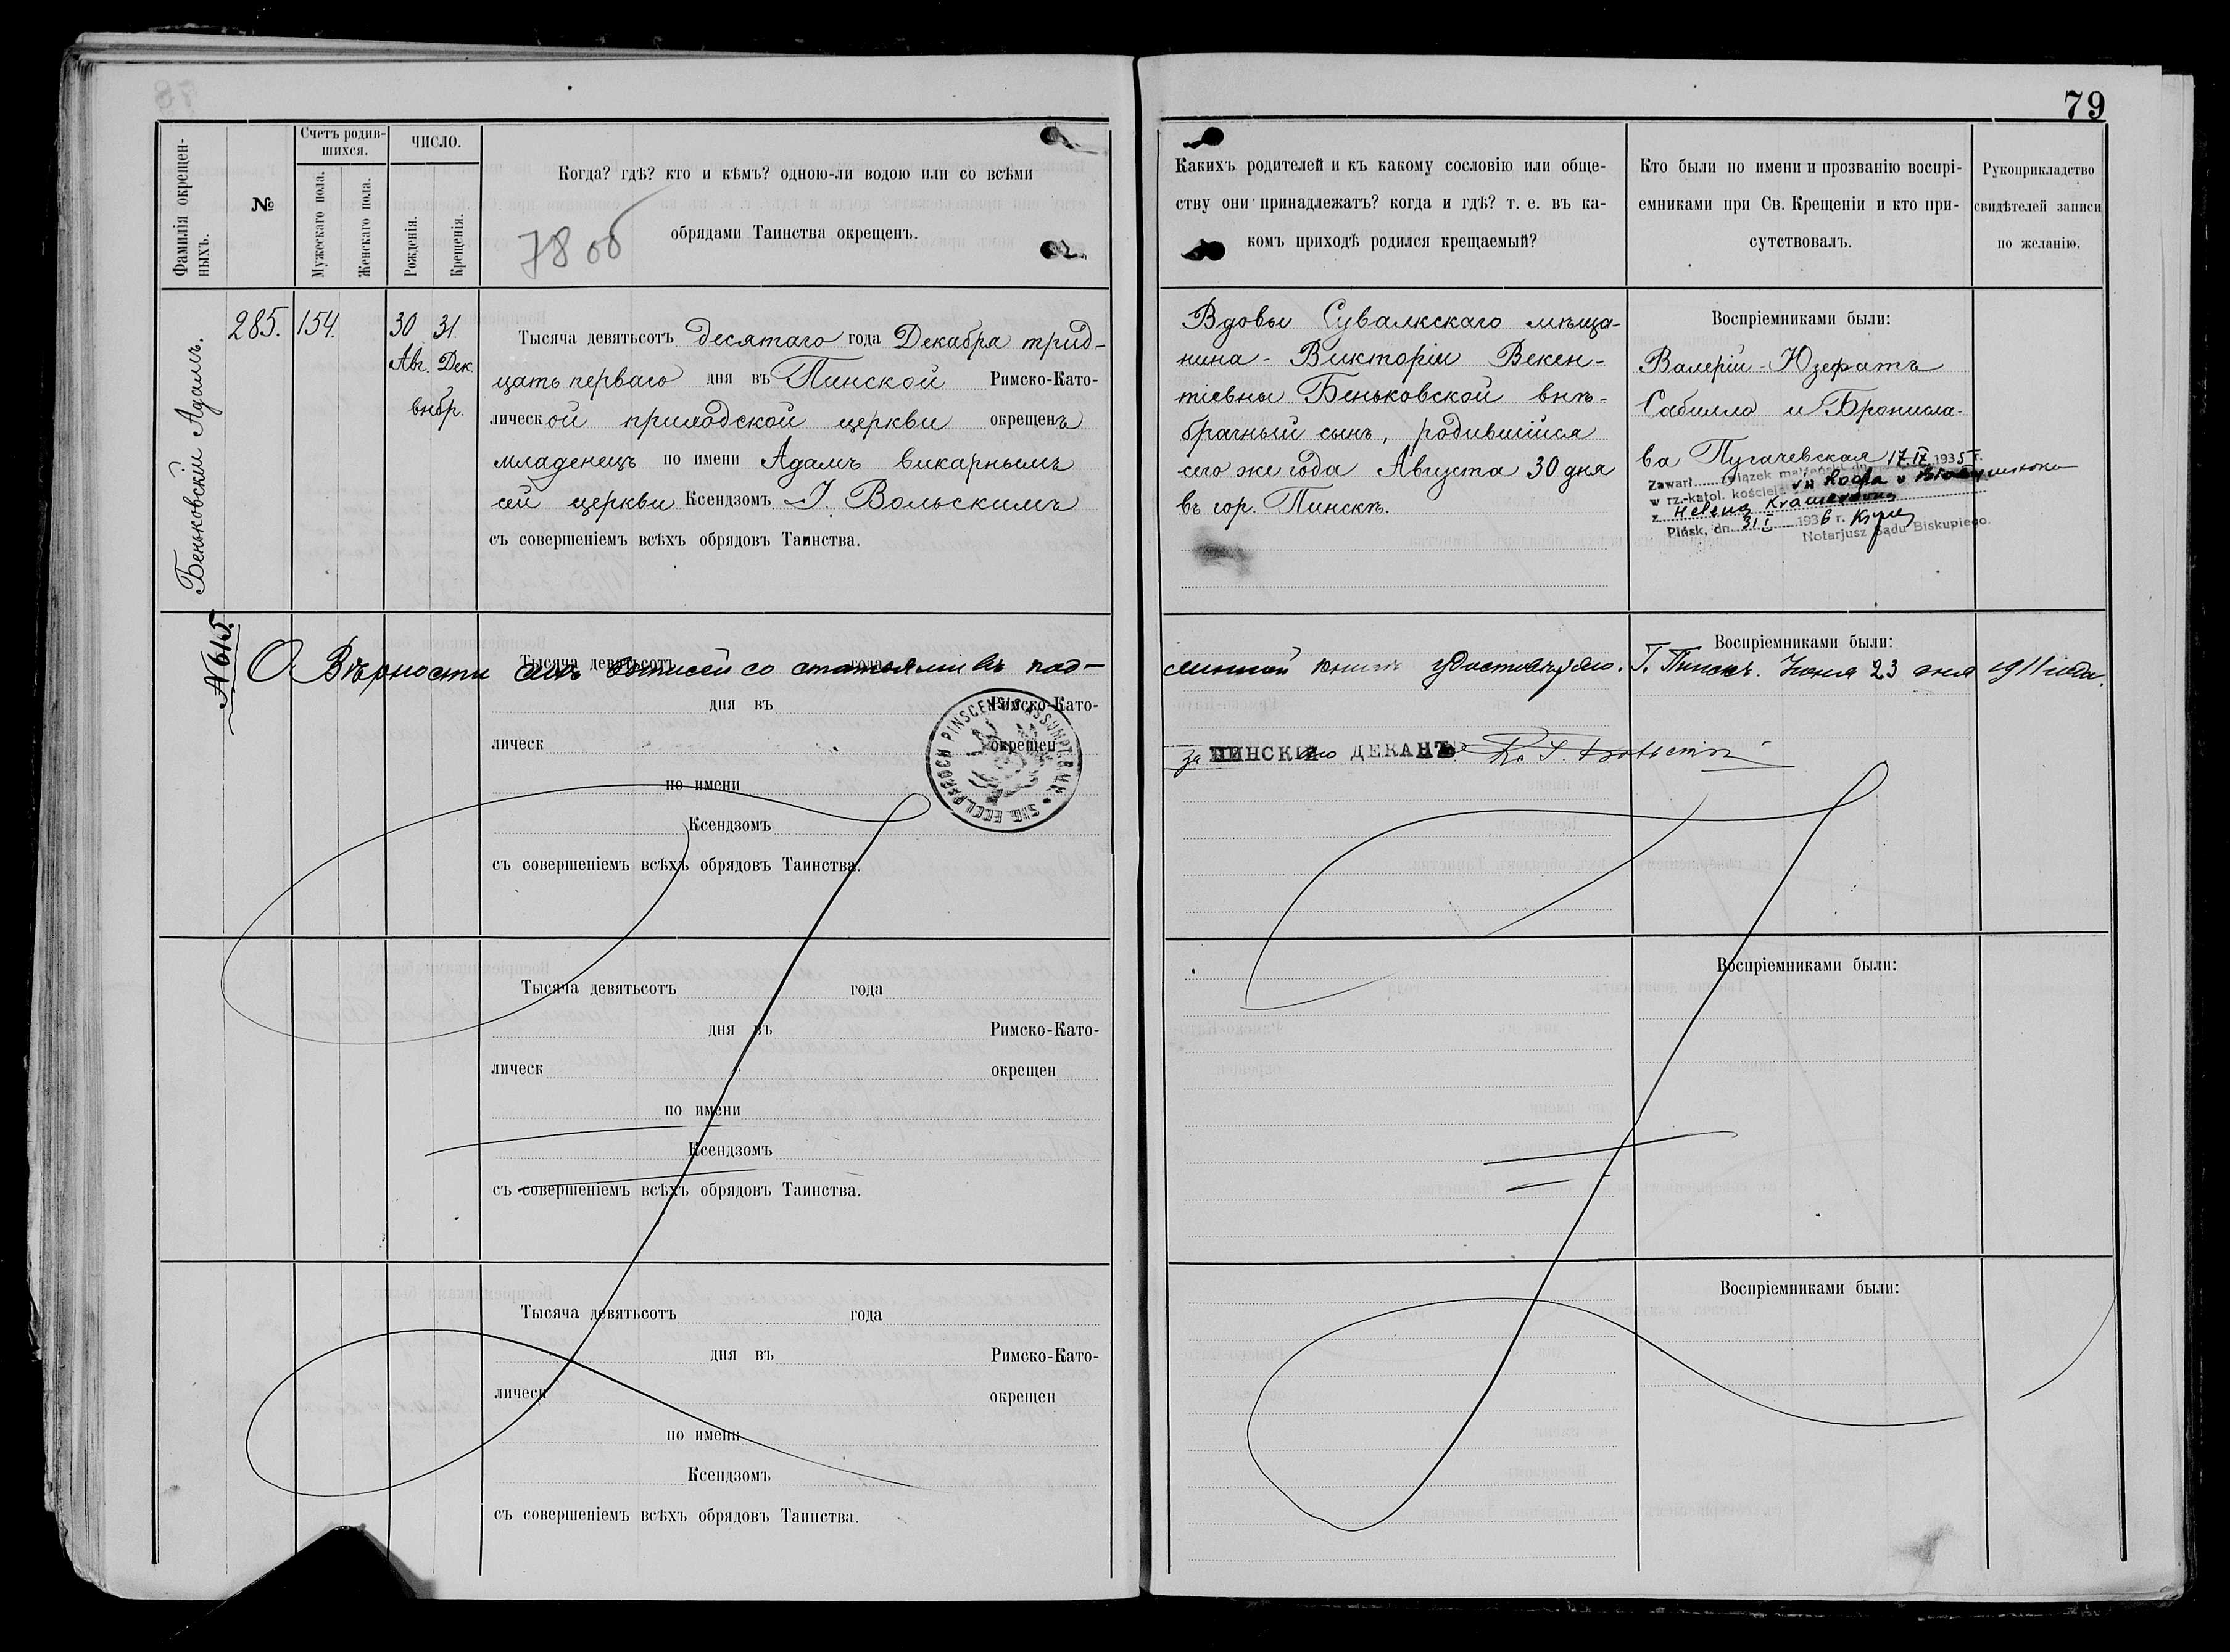 79
Фамилія окрещен-
ныхъ.
№
Счетъ родив-
шихся.
Мужескаго пола.
Женскаго пола.
ЧИСЛО.
Рожденія.
Крещенія.
Когда? гдѣ? кто и кѣмъ? одною-ли водою или со всѣми
обрядами Таинства окрещенъ.
78 об
Какихъ родителей и къ какому сословію или обще-
ству они принадлежатъ? когда и гдѣ? т. е. въ ка-
комъ приходѣ родился крещаемый?
Кто были по имени и прозванію воспрі-
емниками при Св. Крещеніи и кто при-
сутствовалъ.
Рукоприкладство
свидѣтелей записи
по желанію.
Беньковскій Адамъ.
285.
154.
30
Авг.
31
Дек.
Тысяча девятьсотъ десятаго года Декабря трид-
цать перваго дня въ Пинской Римско-Като-
лической приходской церкви окрещенъ
младенецъ по имени Адамъ викарнымъ
сей церкви Ксендзомъ І. Вольскимъ
съ совершеніемъ всѣхъ обрядовъ Таинства.
Вдовы Сувалкскаго мѣща-
нина - Викторіи Векен-
тіевны Беньковской внѣ-
брачный сынъ, родившійся
сего же года Августа 30 дня
въ гор. Пинскѣ.
Воспріемниками были:
Валерій-Юзефатъ
Сабилло и Брониcла-
ва Пугачевская
17.IX 1935 r.
Zawarł związek małżeński dn.
w rz.-katol. kościele
z Heleną
Pińsk, dn. 31 I 1936 r.
Notarjusz Sądu Biskupiego.
№ 615.
О вѣрности сихъ записей со статьями въ под-
линной книгѣ удостовѣряю. Г. Пинскъ. Іюня 23 дня 1911 года.
Тысяча девятьсотъ года
дня въ Римско-Като-
лическ окрещен
по имени
Ксендзомъ
съ совершеніемъ всѣхъ обрядовъ Таинства.
SIG. ECCL. PAROCH PINSCENSIS ASSUMPT. B.M.V.
Воспріемниками были:
за ПИНСКАГО ДЕКАНА Кс. І. Вольскій
Тысяча девятьсотъ года
дня въ Римско-Като-
лическ окрещен
по имени
Ксендзомъ
съ совершеніемъ всѣхъ обрядовъ Таинства.
Воспріемниками были:
Тысяча девятьсотъ года
дня въ Римско-Като-
лическ окрещен
по имени
Ксендзомъ
съ совершеніемъ всѣхъ обрядовъ Таинства.
Воспріемниками были: